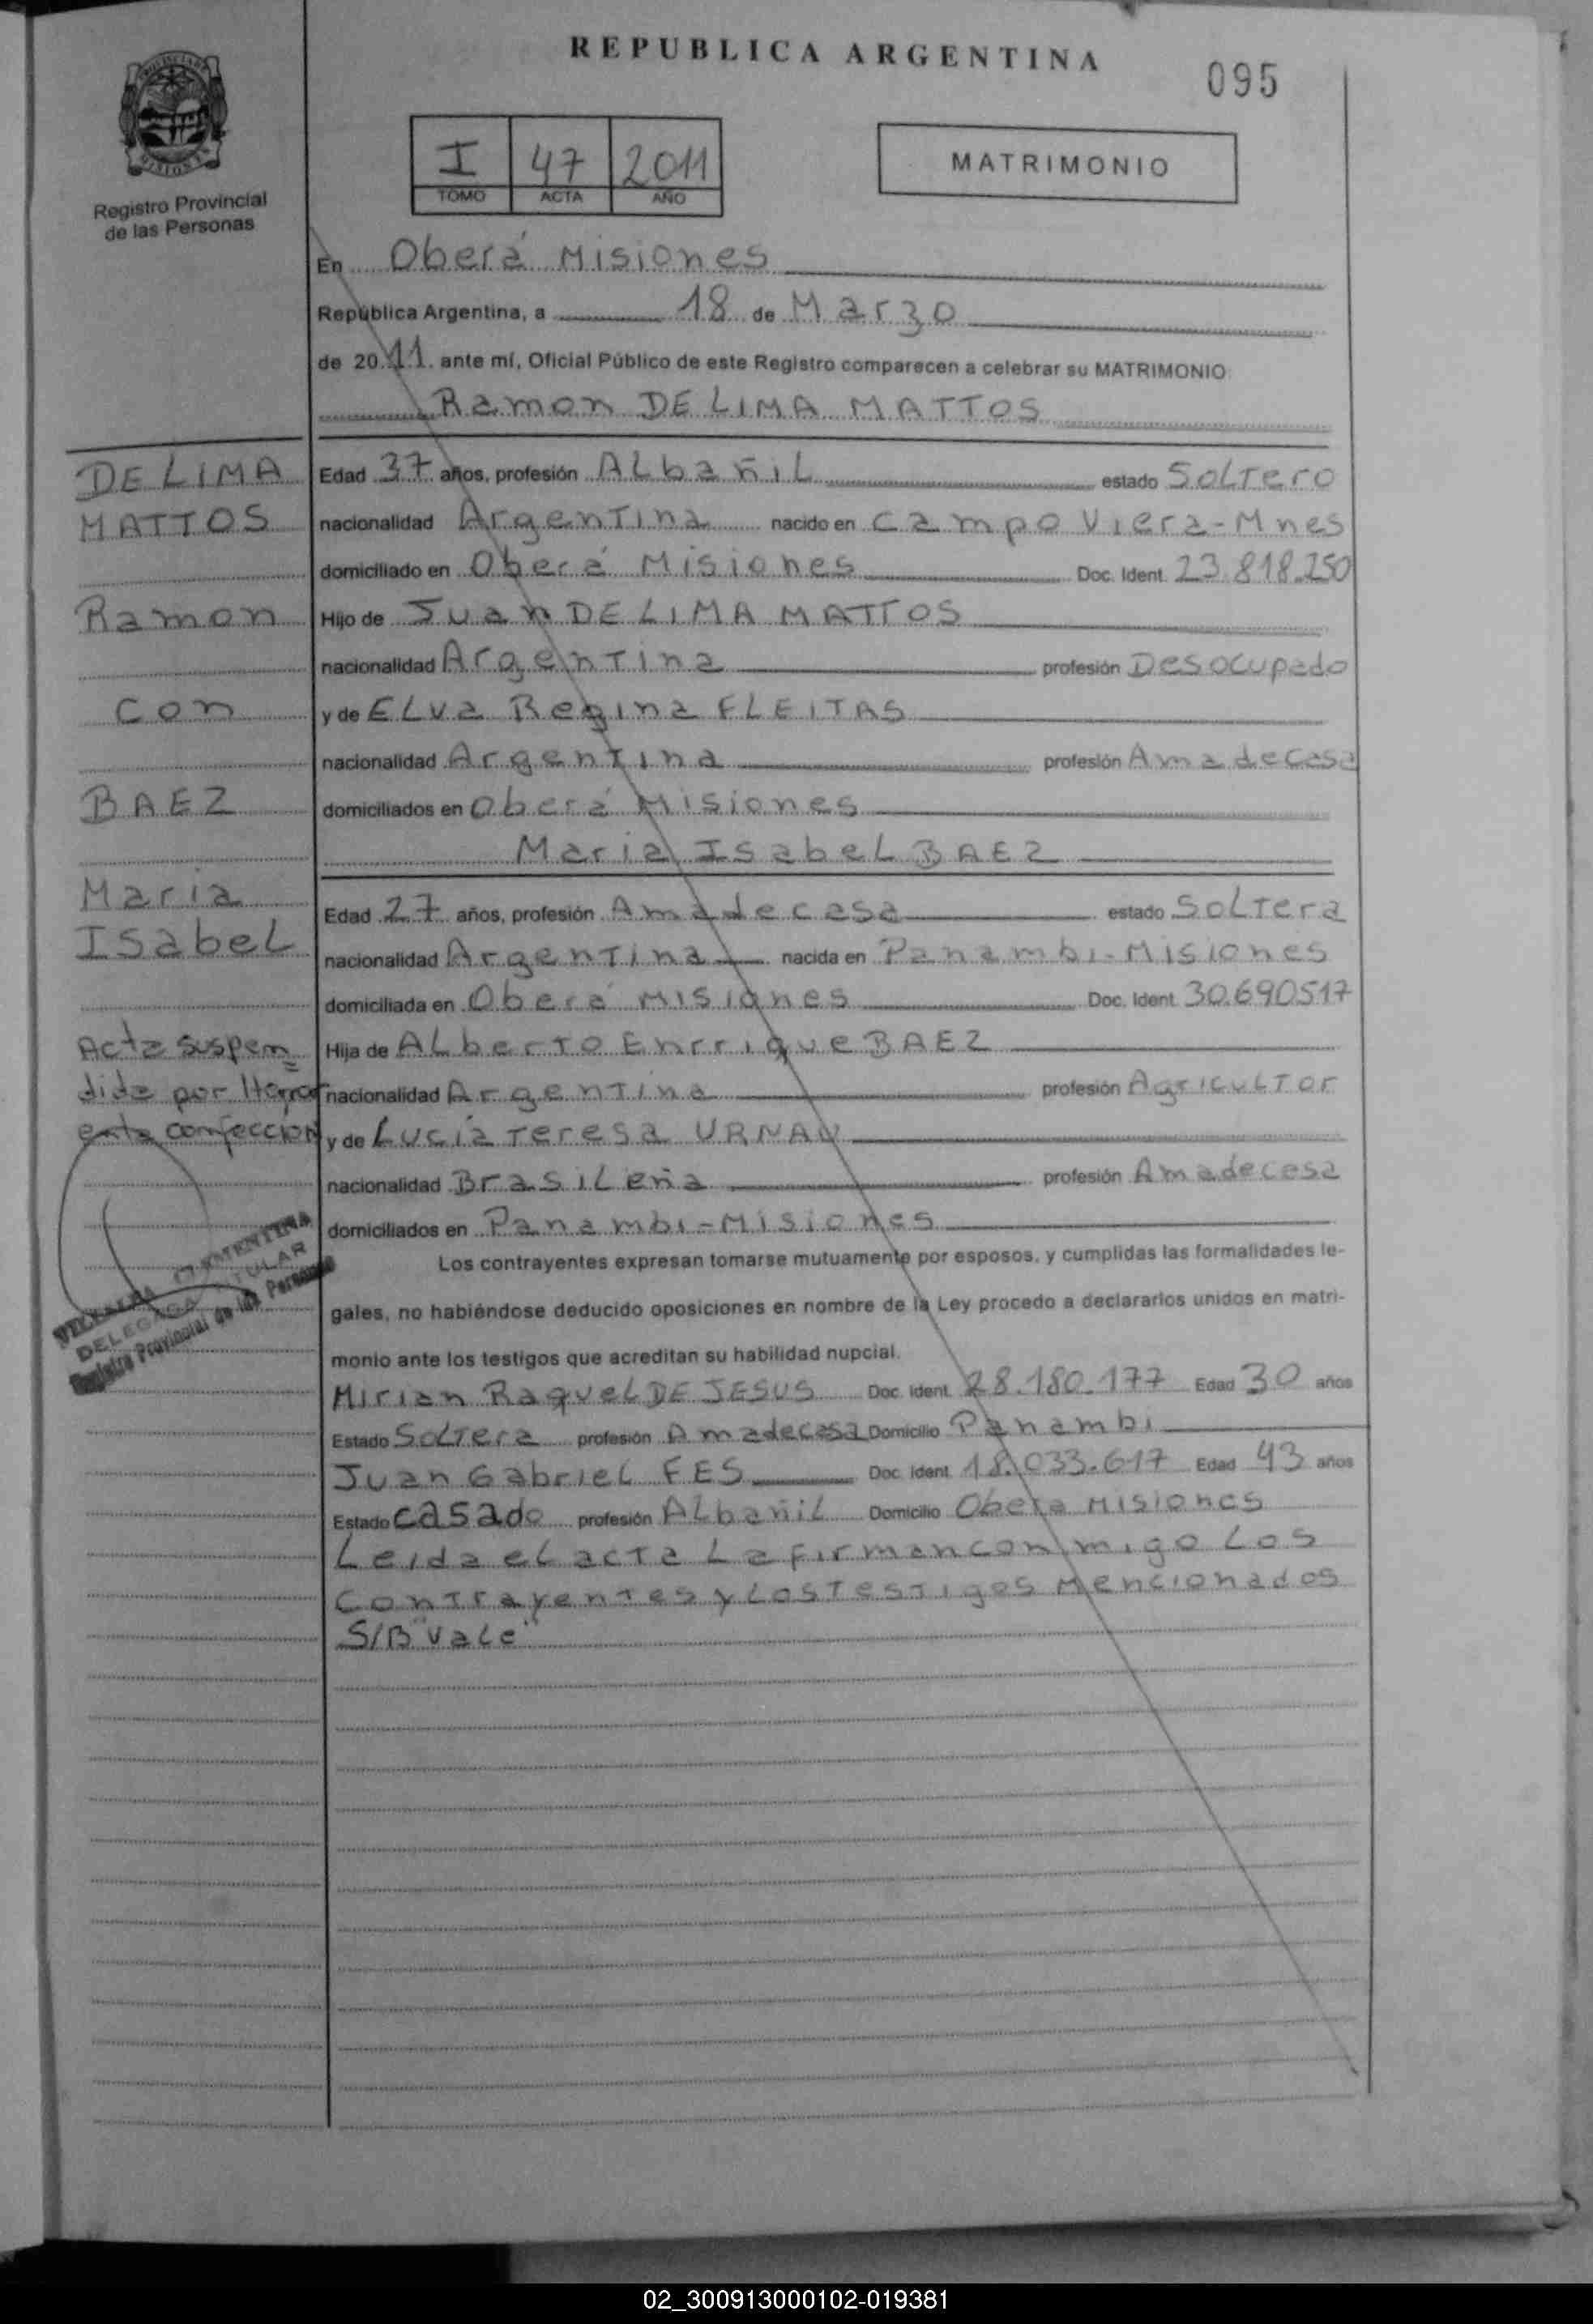 REPUBLICA ARGENTINA
095
PROVINCIA DE MISIONES
Registro Provincial
de las Personas
I 47 2011
TOMO ACTA AÑO
MATRIMONIO
En Oberá Misiones
República Argentina, a 18 de Marzo
de 2011 ante mí, Oficial Público de este Registro comparecen a celebrar su MATRIMONIO
Ramon DE LIMA MATTOS
DE LIMA
MATTOS
Ramon
con
BAEZ
Maria
Isabel
Acta suspen
dida por Herror
en la confeccion
DELEGADA TITULAR
Registro Provincial de las Personas
Edad 37 años, profesión ALbañiL estado SoLTero
nacionalidad ArgenTina nacido en campo Viera-Mnes
domiciliado en Oberá Misiones Doc. Ident. 23.818.250
Hijo de Juan DE LIMA MATTOS
nacionalidad ArgenTina profesión Desocupado
y de ELva Regina FLEITAS
nacionalidad ArgenTina profesión Ama de casa
domiciliados en Oberá Misiones
Maria IsabeL BAEZ
Edad 27 años, profesión Ama de casa estado SoLTera
nacionalidad ArgenTina nacida en Panambi-Misiones
domiciliada en Oberá Misiones Doc. Ident. 30.690517
Hija de ALberTo Enrrique BAEZ
nacionalidad ArgenTina profesión AgricuLTor
y de Lucia Teresa URNAU
nacionalidad BrasiLeña profesión Ama de casa
domiciliados en Panambi-Misiones
Los contrayentes expresan tomarse mutuamente por esposos, y cumplidas las formalidades le-
gales, no habiéndose deducido oposiciones en nombre de la Ley procedo a declararlos unidos en matri-
monio ante los testigos que acreditan su habilidad nupcial.
Mirian RaqueL DE JESUS Doc. Ident. 28.180.177 Edad 30 años
Estado SoLTera profesión Ama de casa Domicilio Panambi
Juan GabrieL FES Doc. Ident. 18.033.617 Edad 43 años
Estado casado profesión ALbañiL Domicilio Obera Misiones
Leida eL acTa La firman conmigo Los
conTrayenTes y Los TesTigos Mencionados
S/B "vaLe"
02_300913000102-019381